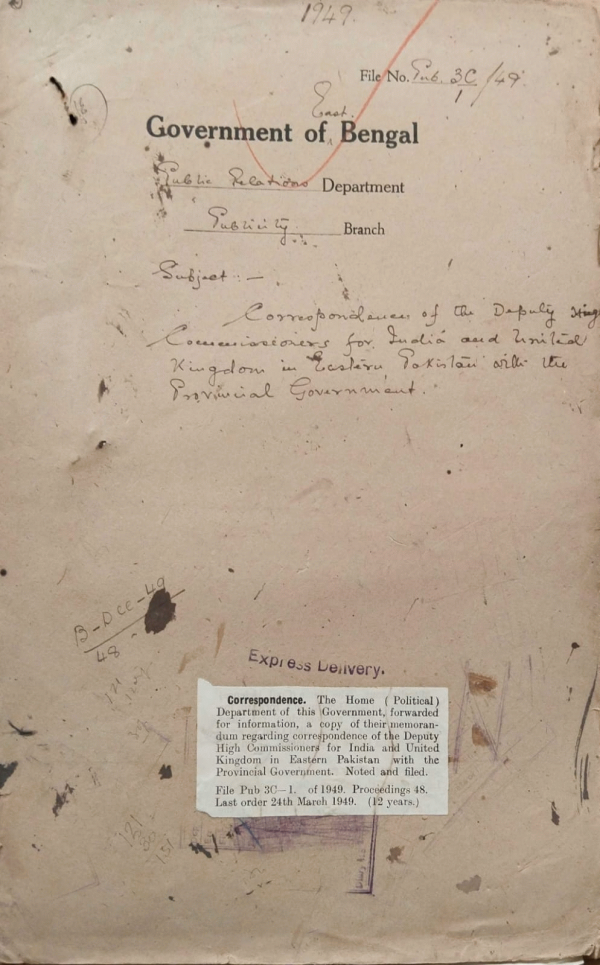 1949.
File No. Pub. 3C/1/49
East
Government of Bengal
Public Relations Department
Publicity Branch
Subject :—
Correspondence of the Deputy High
Commissioners for India and United
Kingdom in Eastern Pakistan with the
Provincial Government.
B-Dec-49
48
Express Delivery.
Correspondence. The Home (Political)
Department of this Government, forwarded
for information, a copy of their memoran-
dum regarding correspondence of the Deputy
High Commissioners for India and United
Kingdom in Eastern Pakistan with the
Provincial Government. Noted and filed.
File Pub 3C—1. of 1949. Proceedings 48.
Last order 24th March 1949. (12 years.)